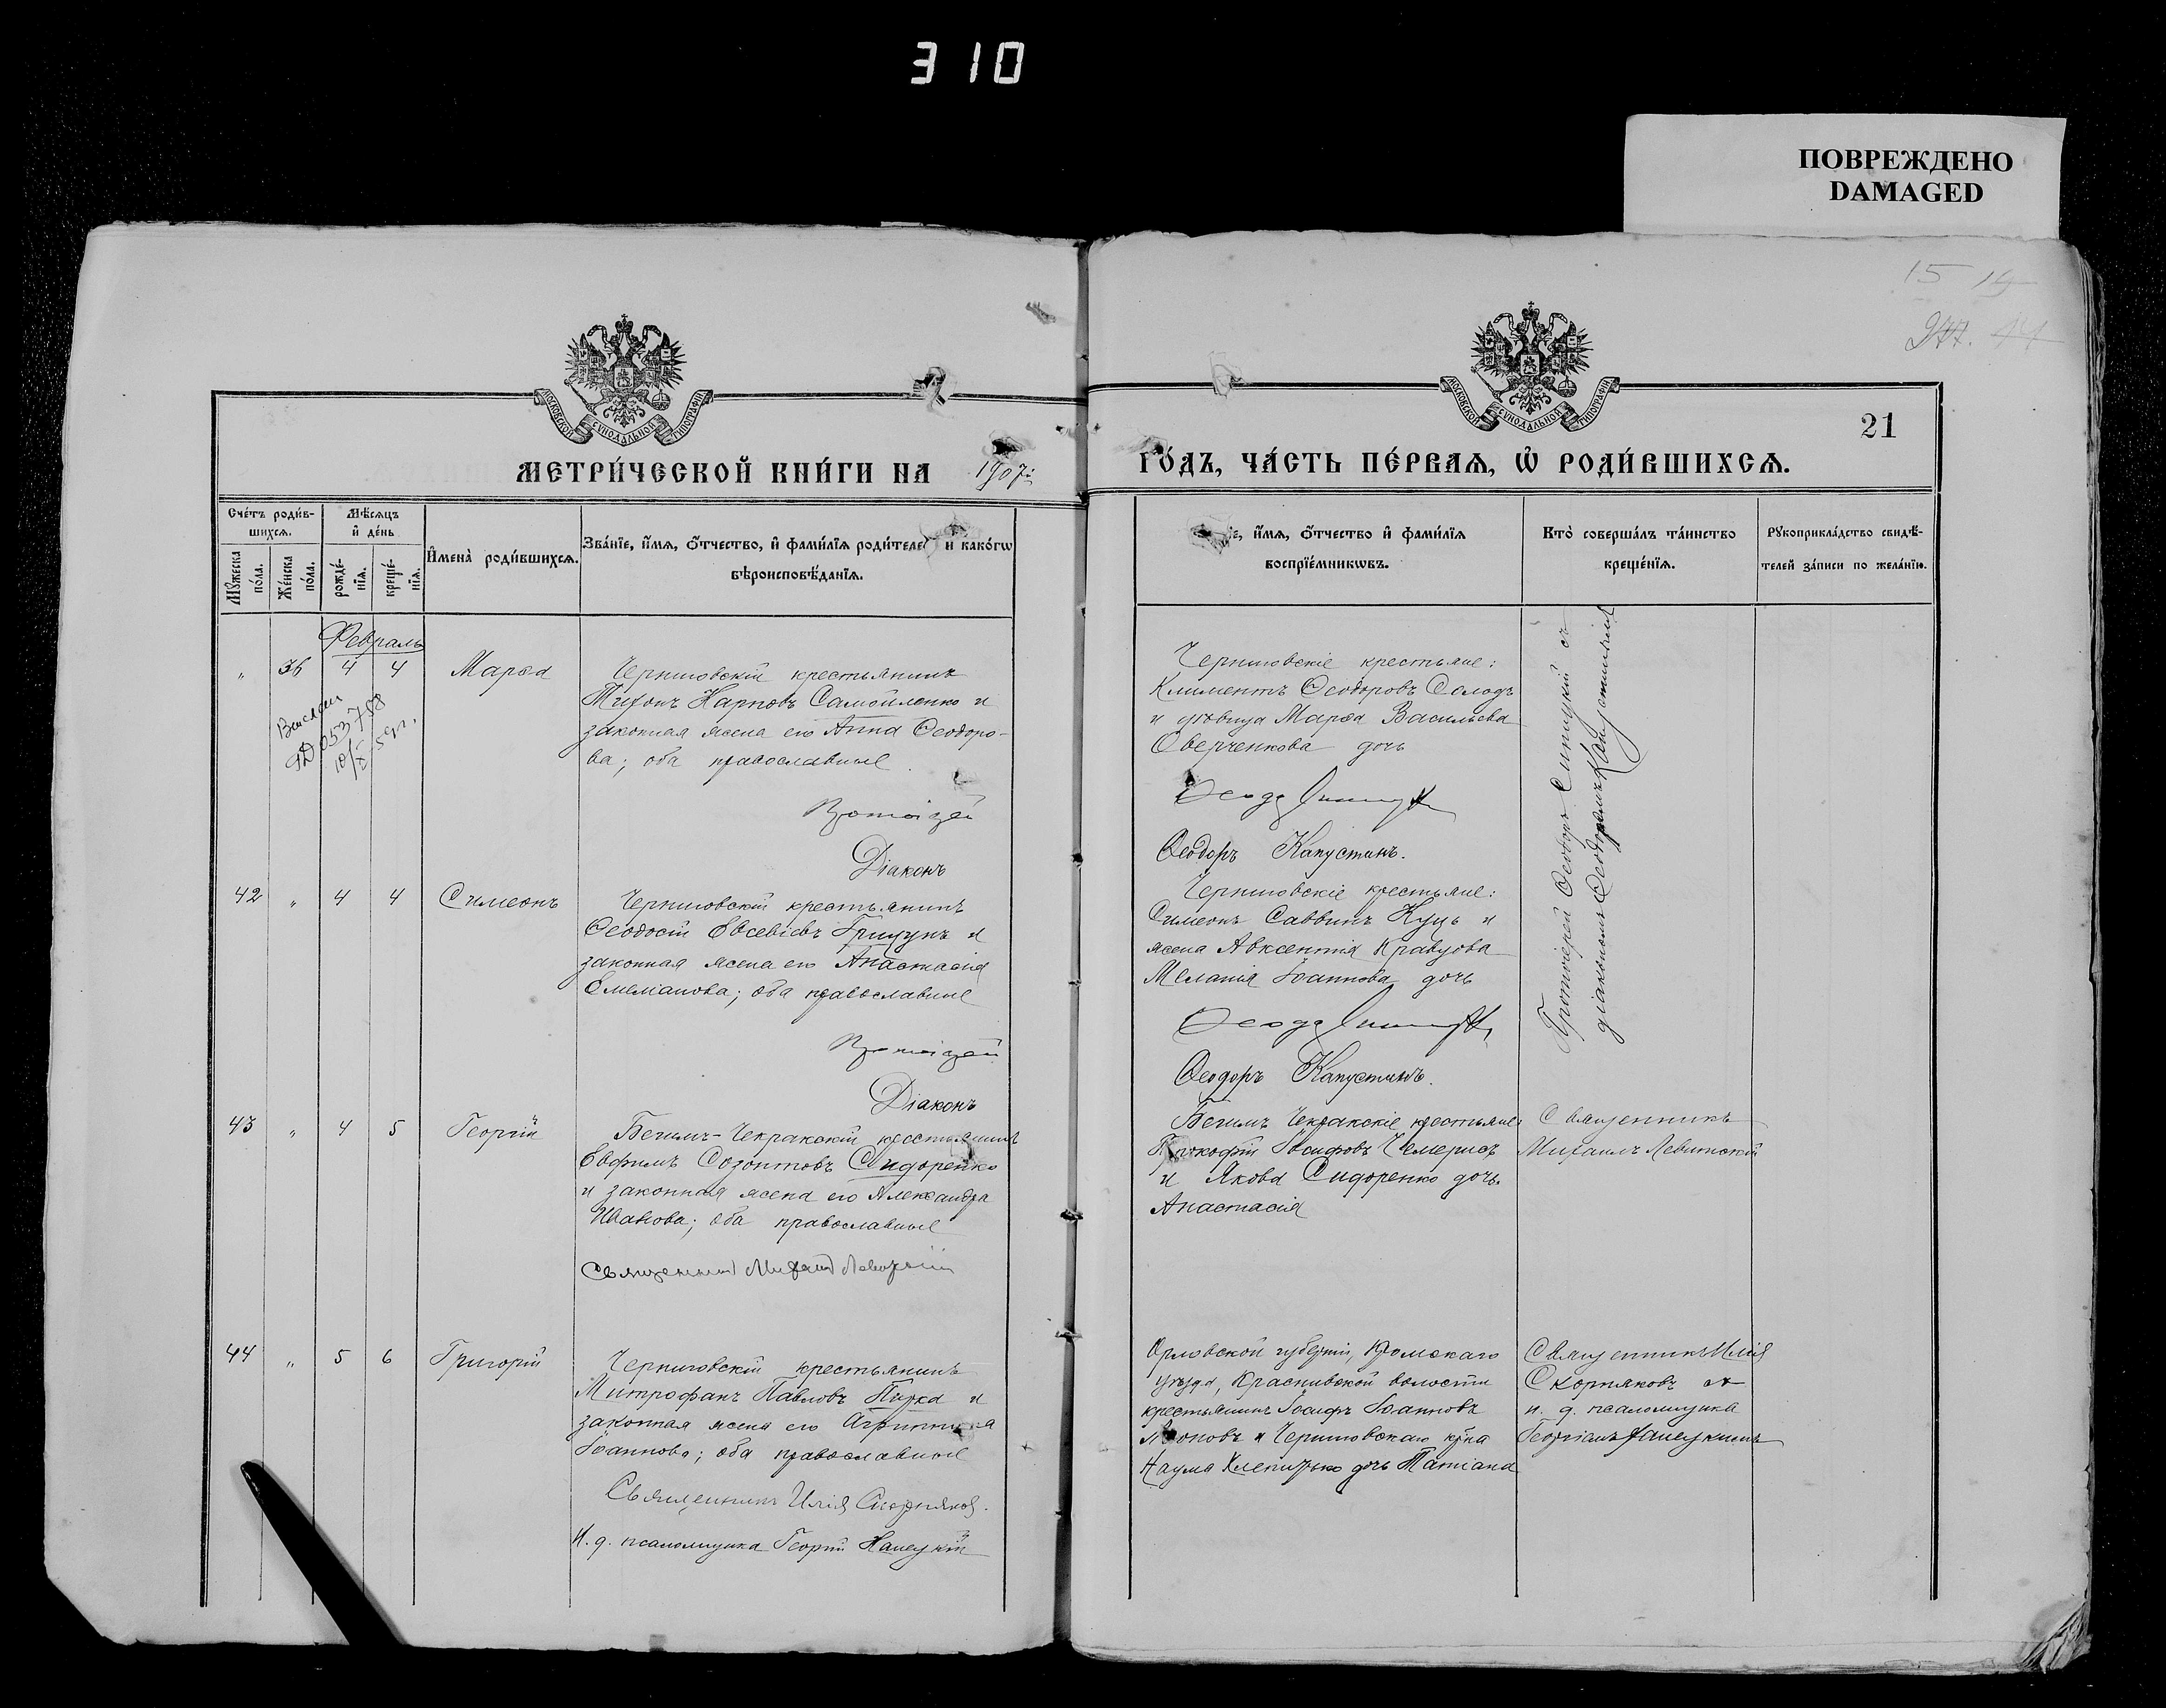 310
ПОВРЕЖДЕНО
DAMAGED
15 14
МОСКОВСКОЙ СѴНОДАЛЬНОЙ ТИПОГРАФІИ
МОСКОВСКОЙ СѴНОДАЛЬНОЙ ТИПОГРАФІИ
21
МЕТРИ́ЧЕСКОЙ КНИ́ГИ НА 1907
ГО́ДЪ, ЧА́СТЬ ПЕ́РВАѦ, Ѡ҆ РОДИ́ВШИХСѦ.
Сче́тъ роди́в-
шихсѧ.
Мꙋжеска по́ла.
Же́нска по́ла.
Мѣ́сѧцъ
и҆ де́нь
рожде́-
нїѧ.
креще́-
нїѧ.
И҆мена̀ роди́вшихсѧ.
Зва́нїе, и҆́мѧ, ѻ҆́тчество, и҆ фами́лїѧ роди́телей и како́гѡ
вѣроисповѣ́данїѧ.
и҆́мѧ, ѻ҆́тчество и҆ фами́лїѧ
воспрїе́мникѡвъ.
Кто̀ соверша́лъ та́инство
креще́нїѧ.
Рꙋкоприкла́дство свидѣ́-
телей за́писи по жела́нїю.
Февраль
" 36 4 4 Марѳа
Черниговскій крестьянинъ
Тихонъ Карповъ Самойленко и
законная жена его Анна Ѳеодоро-
ва; оба православные
Протоіерей
Діаконъ
Черниговскіе крестьяне:
Климентъ Ѳеодоровъ Солодъ
и дѣвица Марѳа Васильева
Оверченкова дочь
Ѳеодоръ Капустинъ.
Протоіерей Ѳеодоръ Синицкій съ
діакономъ Ѳеодоромъ Капустинымъ
42 " 4 4 Симеонъ
Черниговскій крестьянинъ
Ѳеодосій Евсевіевъ Грицунъ и
законная жена его Анастасія
Емеліанова; оба православные
Протоіерей
Діаконъ
Черниговскіе крестьяне:
Симеонъ Саввинъ Куць и
жена Авксентія Кравцова
Меланія Іоаннова дочь
Ѳеодоръ Капустинъ.
43 " 4 5 Георгій
Бегимъ-Чекракскій крестьянинъ
Евфимъ Созонтовъ Сидоренко
и законная жена его Александра
Иванова; оба православные
Священникъ Михаилъ Левитскій
Бегимъ Чекракскіе крестьяне:
Прокофій Іосифовъ Чемерисъ
и Якова Сидоренко дочь
Анастасія
Священникъ
Михаилъ Левитскій
44 " 5 6 Григорій
Черниговскій крестьянинъ
Митрофанъ Павловъ Пирка и
законная жена его Агриппина
Іоаннова; оба православные
Священникъ Илія Скорняковъ.
И. д. псаломщика Георгій
Орловской губерніи, Кромскаго
уѣзда, Краснивской волости
крестьянинъ Іосифъ Іоанновъ
и Черниговскаго кр-на
Наума дочь Татіана
Священникъ Илія
Скорняковъ съ
и. д. псаломщика
Георгіемъ